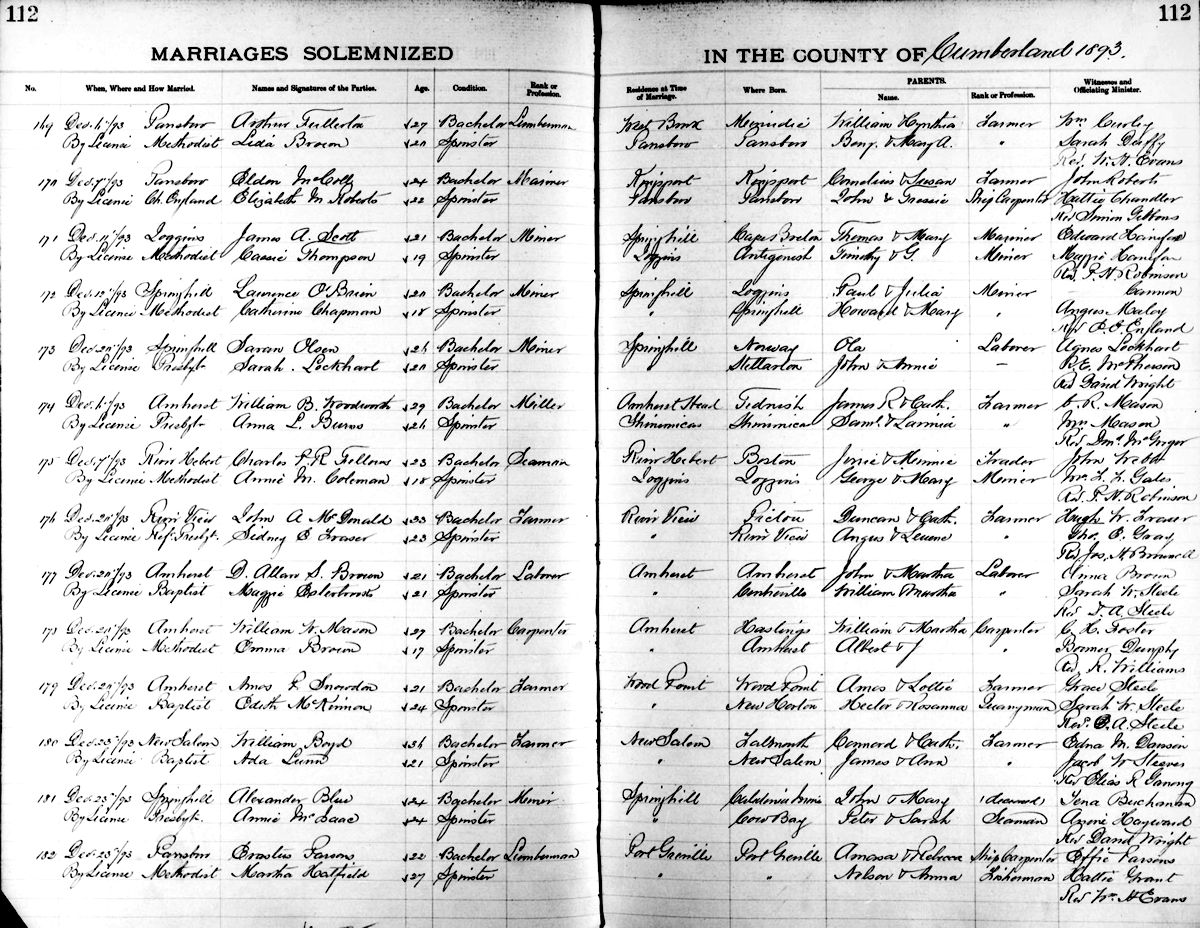 112 112
MARRIAGES SOLEMNIZED IN THE COUNTY OF Cumberland 1893.
No. When, Where and How Married. Names and Signatures of the Parties. Age. Condition. Rank or Profession. Residence at Time of Marriage. Where Born. PARENTS. Name. Rank or Profession. Witnesses and Officiating Minister.
169 Dec. 6"/93 Parrsboro Arthur Fullerton 27 Bachelor Lumberman West Brook William & Cynthia Farmer Wm Curley
By Licence Methodist Lida Brown 20 Spinster Parrsboro Parrsboro Benj. & Mary A. " Sarah Duffy
Rev. W. H. Evans
170 Dec. 7"/93 Parrsboro Eldon McColly 24 Bachelor Mariner Cornelius & Susan Farmer John Roberts
By License Ch. England Elizabeth M Roberts 22 Spinster Parrsboro Parrsboro John & Ship Carpenter Hattie Chandler
Rev Simon Gibbons
171 Dec. 11"/93 Joggins James A. Scott 21 Bachelor Miner Springhill Cape Breton Thomas & Mary Mariner Edward
By License Methodist Cassie Thompson 19 Spinster Joggins Antigonish Timothy & G. Miner Maggie
Rev. Robinson
172 Dec. 12"/93 Springhill Lawrence O'Brien 20 Bachelor Miner Springhill Joggins Paul & Julia Miner Cannon
By Licence Methodist Catherine Chapman 18 Spinster " Springhill Howard & Mary " Angus Maloy
Rev England
173 Dec. 20"/93 Springhill Olsen 26 Bachelor Miner Springhill Norway Ola Laborer Agnes Lockhart
By License Presbyt. Sarah Lockhart 20 Spinster Stellarton John & Annie – R. E. McPherson
Rev David Wright
174 Dec. 6"/93 Amherst William B. Woodworth 29 Bachelor Miller Amherst Head Tidnish James R & Cath. Farmer R. Mason
By License Presbyt. Anna L. Burns 26 Spinster Shinimicas Shinimicas Saml. & " Mrs Mason
Rev McGregor
175 Dec. 7"/93 River Hebert Charles Fellows 23 Bachelor Seaman River Hebert Boston & Minnie Trader John
By Licence Methodist Annie M. Coleman 18 Spinster Joggins Joggins George & Mary Miner Gates
Rev. Robinson
176 Dec. 20"/93 River View John A McDonald 33 Bachelor Farmer River View Pictou Duncan & Cath. Farmer Hugh W. Fraser
By License Ref. Presbyt. Sidney E Fraser 23 Spinster " River View Angus & " Tho. E. Gray
Rev Jos. H. Brownell
177 Dec. 20"/93 Amherst D. Allan S. Brown 21 Bachelor Laborer Amherst Amherst John & Martha Laborer Anna Brown
By Licence Baptist Maggie Esterbrooks 21 Spinster " Centreville William & Martha " Sarah W. Steele
Rev D. A. Steele
178 Dec. 20"/93 Amherst William W. Mason 29 Bachelor Carpenter Amherst Hastings William & Martha Carpenter C. H. Foster
By Licence Methodist Emma Brown 17 Spinster " Amherst Albert & J " Dunphy
Rev. R. Williams
179 Dec. 20"/93 Amherst Amos F. Snowdon 21 Bachelor Farmer Wood Point Wood Point Amos & Lottie Farmer Grace Steele
By Licence Baptist Edith McKinnon 24 Spinster " New Horton Hector & Rosanna Quarryman Sarah W. Steele
Rev. D. A. Steele
180 Dec. 25"/93 New Salem William Boyd 36 Bachelor Farmer New Salem Falmouth & Cath. Farmer Edna M. Dawson
By Licence Baptist Ada Lunn 21 Spinster " New Salem James & Ann " Jacob W Steeves
Rev Elias R Ganong
181 Dec. 25"/93 Springhill Alexander Blue 24 Bachelor Miner Springhill Caledonia Mines John & Mary (deceased) Tena Buchanan
By License Presbyt. Annie McIsaac 24 Spinster " Cow Bay Peter & Sarah Seaman Hayward
Rev David Wright
182 Dec. 25"/93 Parrsboro Erastus Parson 22 Bachelor Lumberman Port Greville Port Greville Amasa & Rebecca Ship Carpenter Effie Parsons
By License Methodist Martha Hatfield 27 Spinster " " Nelson & Anna Fisherman Hattie Grant
Rev Wm. H Evans